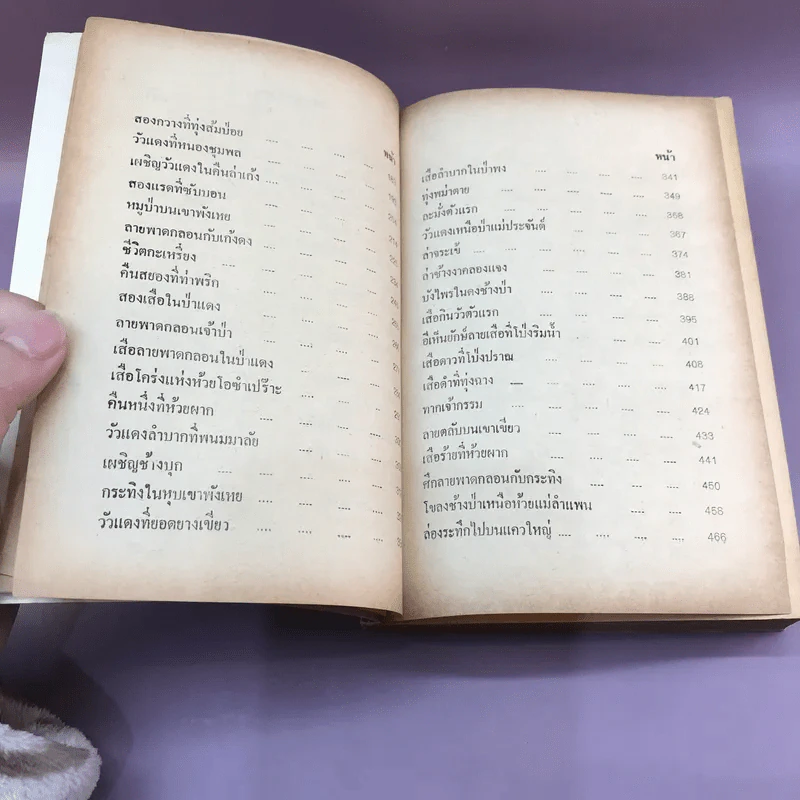 สองกวางที่ทุ่งส้มป่อย .... .... .... หน้า
วัวแดงที่หนองชุมพล .... .... ....
เผชิญวัวแดงในคืนล่าเก้ง .... ....
สองแรดที่ซับบอน .... .... ....
หมูป่าบนเขาพังเหย .... .... ....
ลายพาดกลอนกับเก้งดง .... ....
ชีวิตกะเหรี่ยง .... .... ....
คืนสยองที่ท่าพริก .... .... ....
สองเสือในป่าแดง .... .... ....
ลายพาดกลอนเจ้าป่า .... .... ....
เสือลายพาดกลอนในป่าแดง .... ....
เสือโคร่งแห่งห้วยโอซำเปร๊าะ .... ....
คืนหนึ่งที่ห้วยผาก .... .... ....
วัวแดงลำบากที่พนมมาลัย .... ....
เผชิญช้างบุก .... .... .... ....
กระทิงในหุบเขาพังเหย .... .... ....
วัวแดงที่ยอดยางเขียว .... .... .... ....
หน้า
เสือลำบากในป่าพง .... .... .... 341
ทุ่งพม่าตาย .... .... .... .... 349
ละมั่งตัวแรก .... .... .... .... 358
วัวแดงเหนือป่าแม่ประจันต์ .... .... 367
ล่าจระเข้ .... .... .... .... 374
ล่าช้างงาคลองแจง .... .... .... 381
บังไพรในดงช้างป่า .... .... .... 388
เสือกินวัวตัวแรก .... .... .... 395
อีเห็นยักษ์ลายเสือที่โป่งริมน้ำ .... .... 401
เสือดาวที่โป่งปราณ .... .... .... 408
เสือดำที่ทุ่งฉาง .... .... .... .... 417
ทากเจ้ากรรม .... .... .... .... 424
ลายตลับบนเขาเขียว .... .... .... 433
เสือร้ายที่ห้วยผาก .... .... .... 441
ศึกลายพาดกลอนกับกระทิง .... .... 450
โขลงช้างป่าเหนือห้วยแม่ลำแพน .... .... 458
ล่องระทึกไปบนแควใหญ่ .... .... .... .... 466